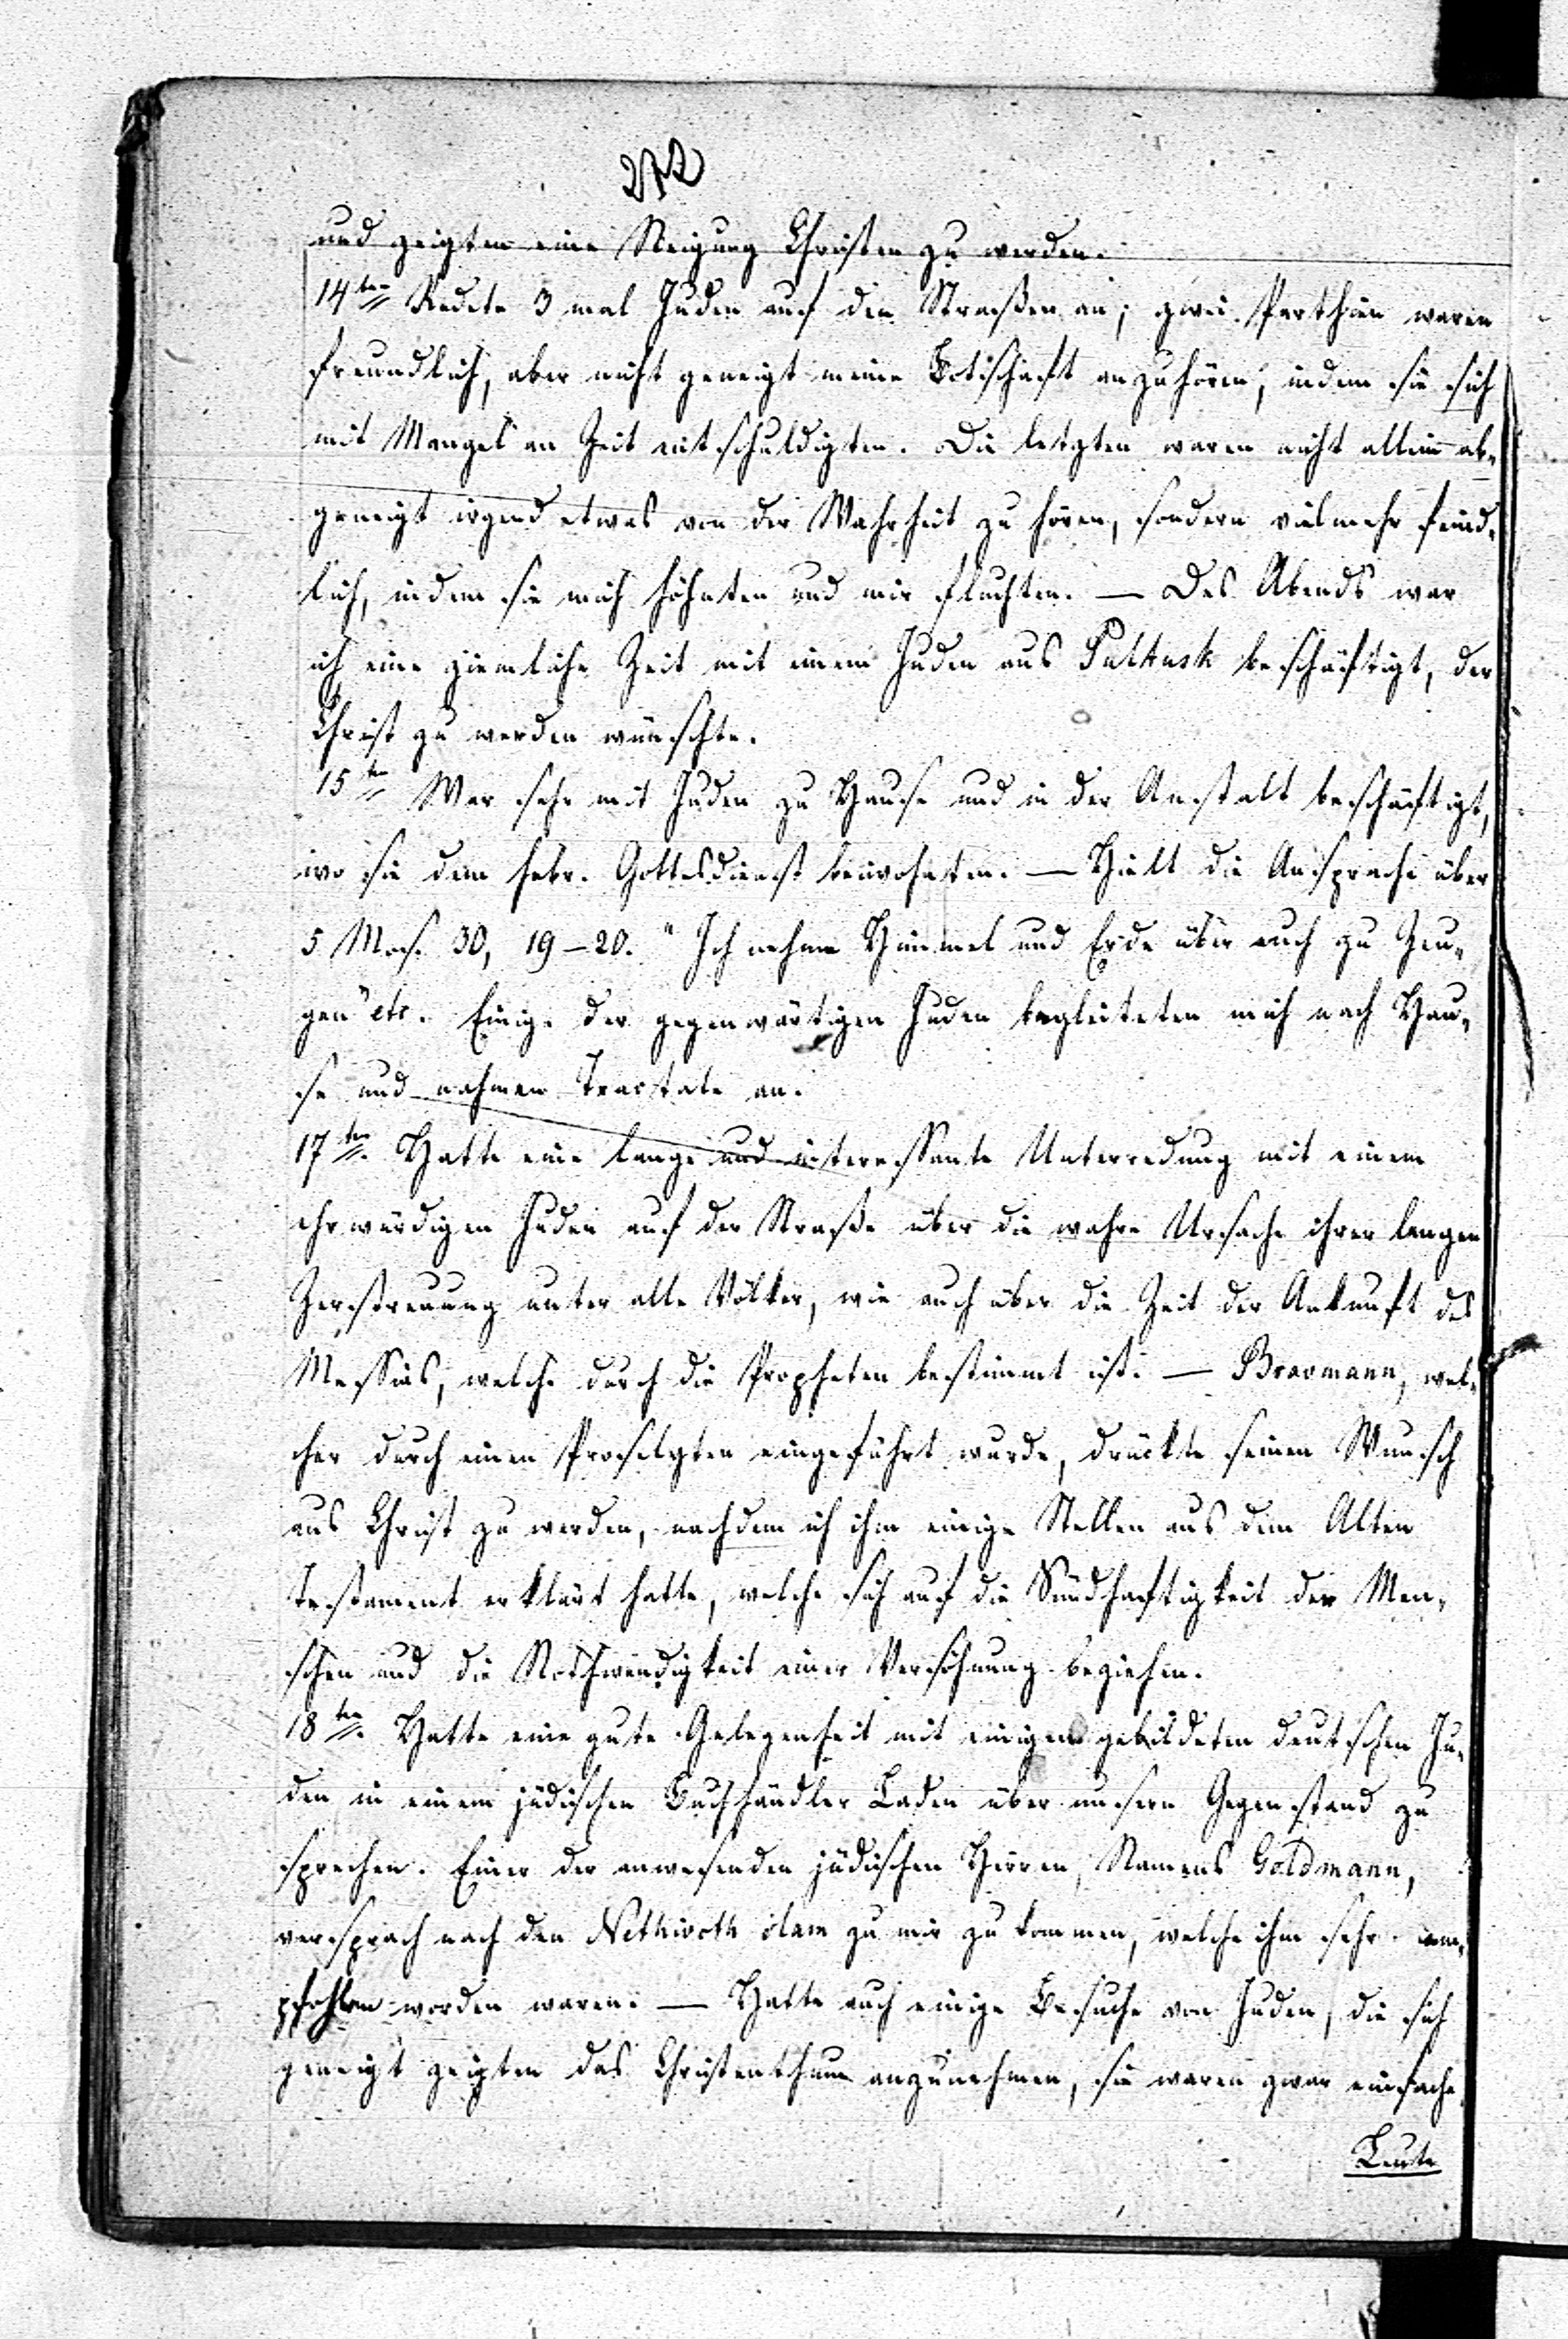 272
und zeigten eine Neigung Christen zu werden.
14ten Redete 3 mal Juden auf den Straßen an; zwei Parthien waren
freundlich, aber nicht geneigt meine Botschaft anzuhören, indem sie sich
mit Mangel an Zeit entschuldigten. Die letzten waren nicht allein ab-
geneigt irgend etwas von der Wahrheit zu hören, sondern vielmehr feind-
lich, indem sie mich höhnten und mir fluchten. — Des Abends war
ich eine ziemliche Zeit mit einem Juden aus Pultusk beschäftigt, der
Christ zu werden wünschte.
15ten War sehr mit Juden zu Hause und in der Anstalt beschäftigt,
wo sie dem hebr. Gottesdienst beiwohnten. — Hielt die Ansprache über
5 Mos. 30, 19–20. "Ich nehme Himmel und Erde über euch zu Zeu-
gen" etc. Einige der gegenwärtigen Juden begleiteten mich nach Hau-
se und nahmen Tractate an.
17ten Hatte eine lange und interessante Unterredung mit einem
ehrwürdigen Juden auf der Straße über die wahre Ursache ihrer langen
Zerstreuung unter alle Völker, wie auch über die Zeit der Ankunft des
Messias, welche durch die Propheten bestimmt ist. — Bravmann, wel-
cher durch einen Proselyten eingeführt wurde, drückte seinen Wunsch
aus Christ zu werden, nachdem ich ihm einige Stellen aus dem Alten
Testament erklärt hatte, welche sich auf die Sündhaftigkeit der Men-
schen und die Nothwendigkeit einer Versöhnung beziehen.
18ten Hatte eine gute Gelegenheit mit einigen gebildeten deutschen Ju-
den in einem jüdischen Buchhändler Laden über unsern Gegenstand zu
sprechen. Einer der anwesenden jüdischen Herren, Namens Goldmann,
versprach nach den Nethivoth olam zu mir zu kommen, welche ihm sehr em-
pfohlen worden waren. — Hatte auch einige Besuche von Juden, die sich
geneigt zeigten das Christenthum anzunehmen, sie waren zwar einfache
Leute